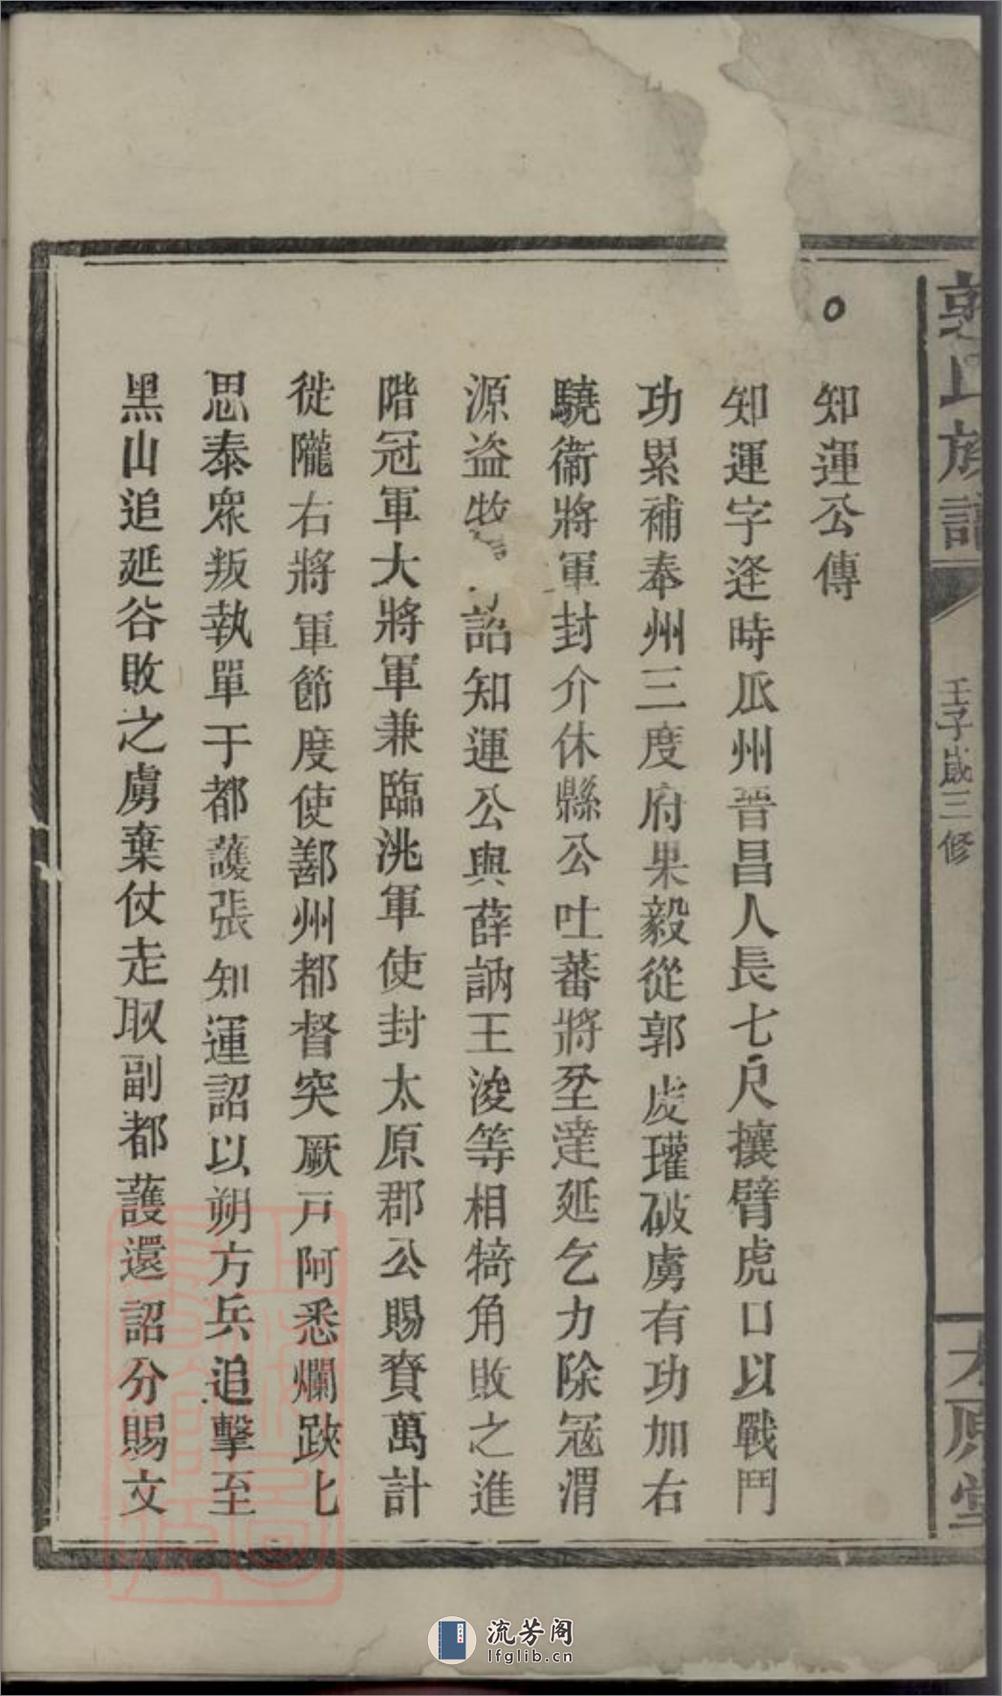 知運公傳
知運字逢時瓜州晉昌人長七尺攘臂虎口以戰鬥
功累補奉州三度府果毅從郭虔瓘破虜有功加右
驍衞將軍封介休縣公吐蕃將坌達延乞力除冦渭
源盜牧詔知運公與薛訥王淩等相犄角敗之進
階冠軍大將軍兼臨洮軍使封太原郡公賜賚萬計
徙隴右將軍節度使鄯州都督突厥戸阿悉爛跌匕
思泰衆叛執單于都護張知運詔以朔方兵追擊至
黑山追延谷敗之虜棄仗走取副都護還詔分賜文
氏族譜
壬子嵗三修
原堂
流芳阁
lfglib.cn